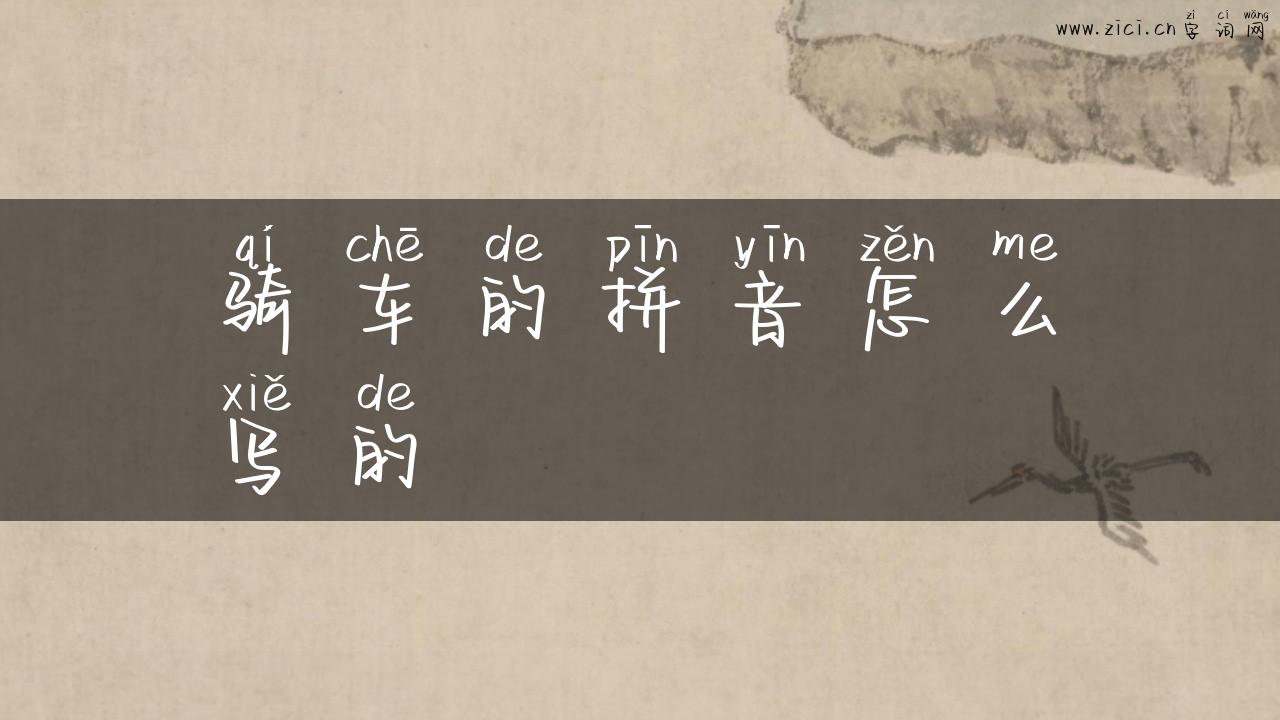 www.zici.cn
zì cí wǎng
字词网
qí chē de pīn yīn zěn me
骑车的拼音怎么
xiě de
写的